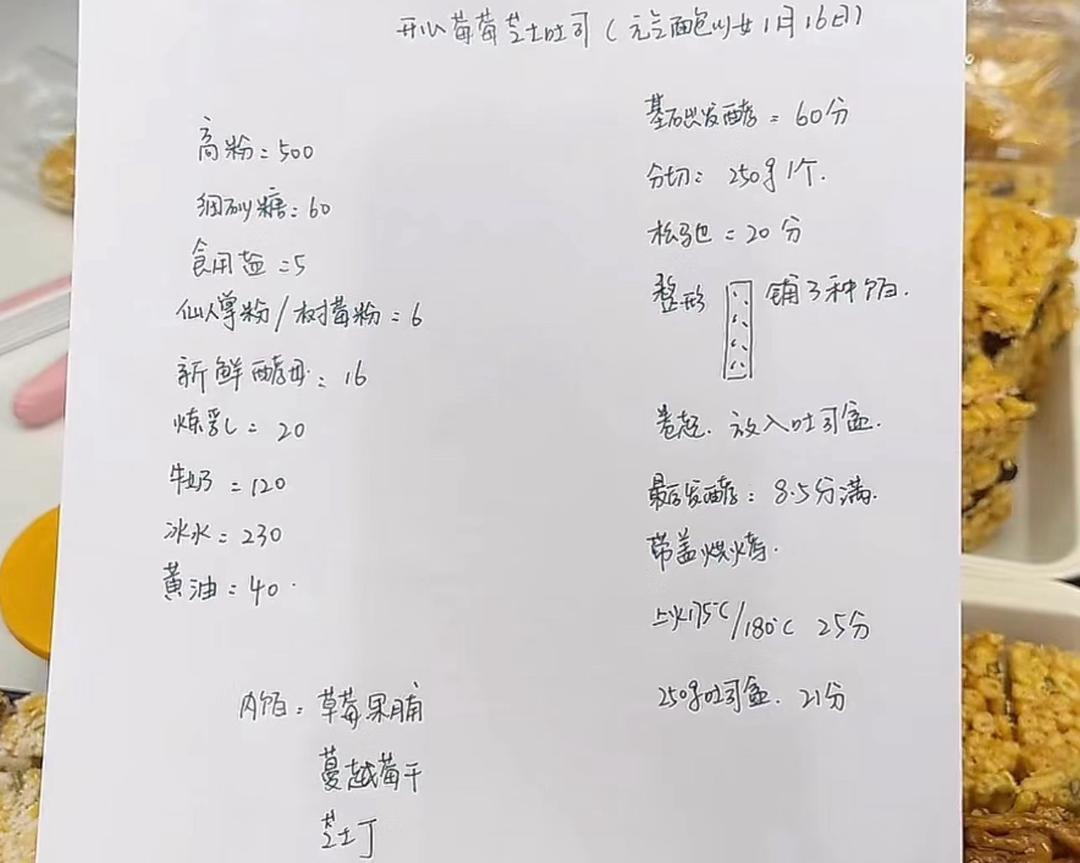 开心莓莓芝士吐司(元气面包少女11月16日)
高粉=500
细砂糖:60
食用盐=5
仙人掌粉/树莓粉=6
新鲜酵母:16
炼乳=20
牛奶=120
冰水=230
黄油:40.
内馅:草莓果脯
蔓越莓干
芝士丁
基础发酵=60分
分切:250g1个.
松弛=20分
整形 铺3种馅.
卷起.放入吐司盒.
最后发酵:8.5分满.
带盖烘烤.
上火175℃/180℃ 25分
250g吐司盒.21分